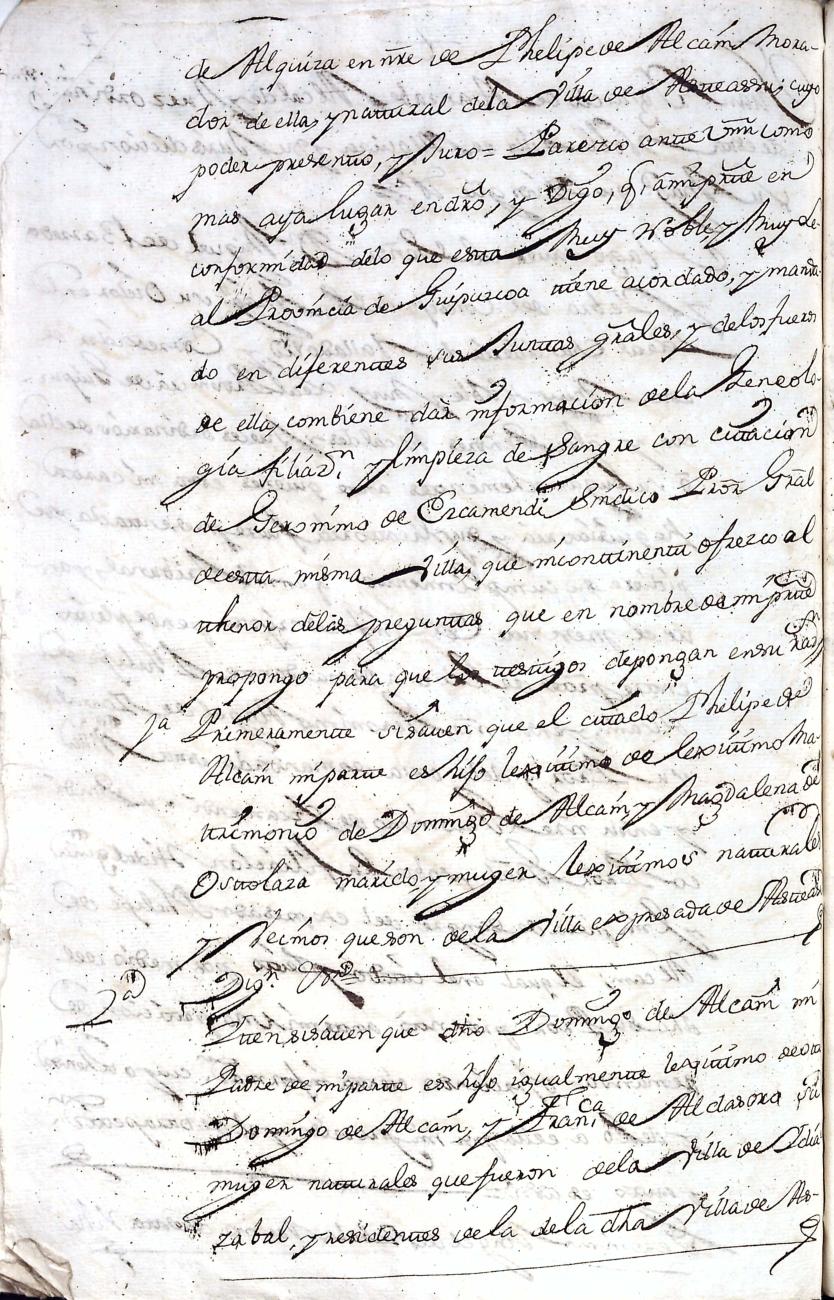 de Alquiza en nre de Phelipe de Alcain Mora-
dor de ella, y natural dela Villa de Asteassu, cuyo
poder presento, y Juro = Parezco ante Vmd como
mas aya lugar en dro, y Digo, q̃, a mi prte en
conformidad delo que esta Muy Noble, y Muy Le-
al Provincia de Guipuzcoa tiene acordado, y manda-
do en diferentes sus Juntas grales, y delos fueros
de ella, combiene dar informacion dela Geneolo-
gia filiazn, y limpieza de Sangre con citacion
de Geronimo de Ercamendi Sindico Pror Gral
de esta misma Villa, que incontinenti ofrezco al
thenor delas preguntas que en nombre de mi prte
propongo para que los testigos depongan en su razn
1a Primeramente si saven que el citado Phelipe de
Alcain mi parte es hijo lexitimo de lexitimo Ma-
trimonio de Domingo de Alcain, y Magdalena de
Ostolaza marido y muger lexitimos naturales
y Vecinos que son dela Villa expresada de Asteasu
Dign
2a Yten si saven que dho Domingo de Alcain mi
Padre de mi parte es hijo igualmente lexitimo de otro
Domingo de Alcain, y Franca de Aldasoro su
muger naturales que fueron dela Villa de Ydia-
zabal, y residentes dela dela dha Villa de As-